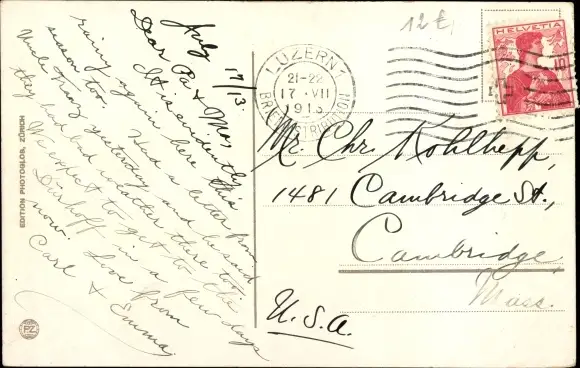 July 17/13.
Dear Pa & Ma,
It is evidently
rainy again here this
season too. Had a letter from
Uncle yesterday and he said
they had bad weather there too.
We expect to get to the
Dürkoff in a few days
now. Love from
Carl & Emma,
EDITION PHOTOGLOB, ZÜRICH
PZ
12 €,
LUZERN 1
21-22
17.VII
1913
BRIEFDISTRIBUTION
HELVETIA
10
Mr. Chr. Kohlhepp,
1481 Cambridge St.,
Cambridge,
Mass.
U.S.A.